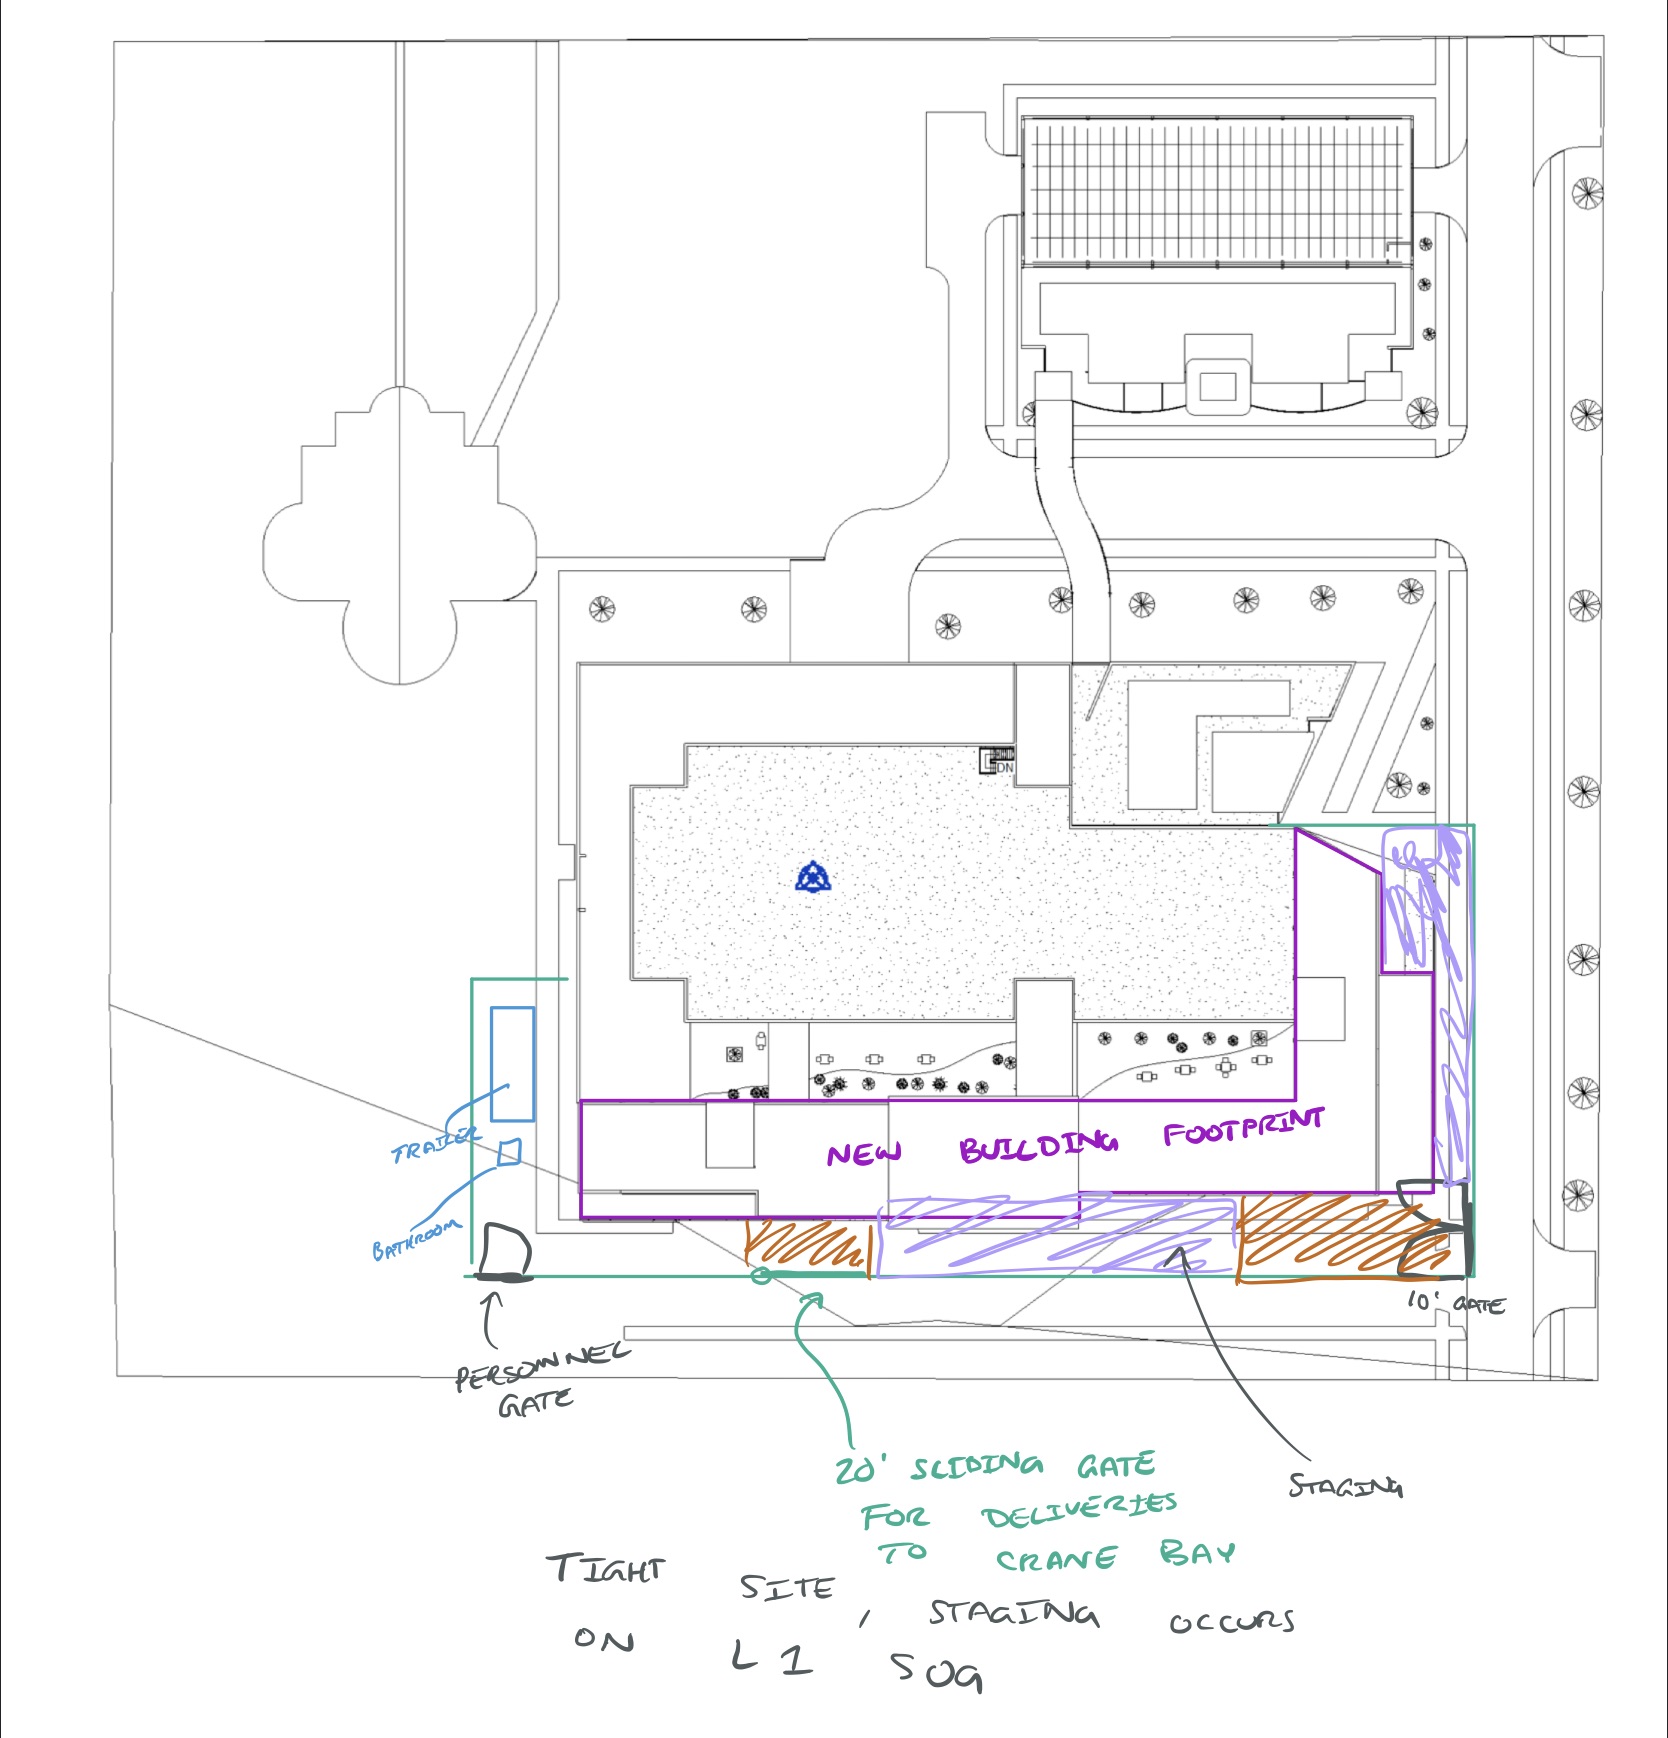 DN
NEW BUILDING FOOTPRINT
TRAILER
BATHROOM
10' GATE
PERSONNEL
GATE
20' SLIDING GATE
FOR DELIVERIES
TO CRANE BAY
STAGING
TIGHT SITE, STAGING OCCURS
ON L1 SOG